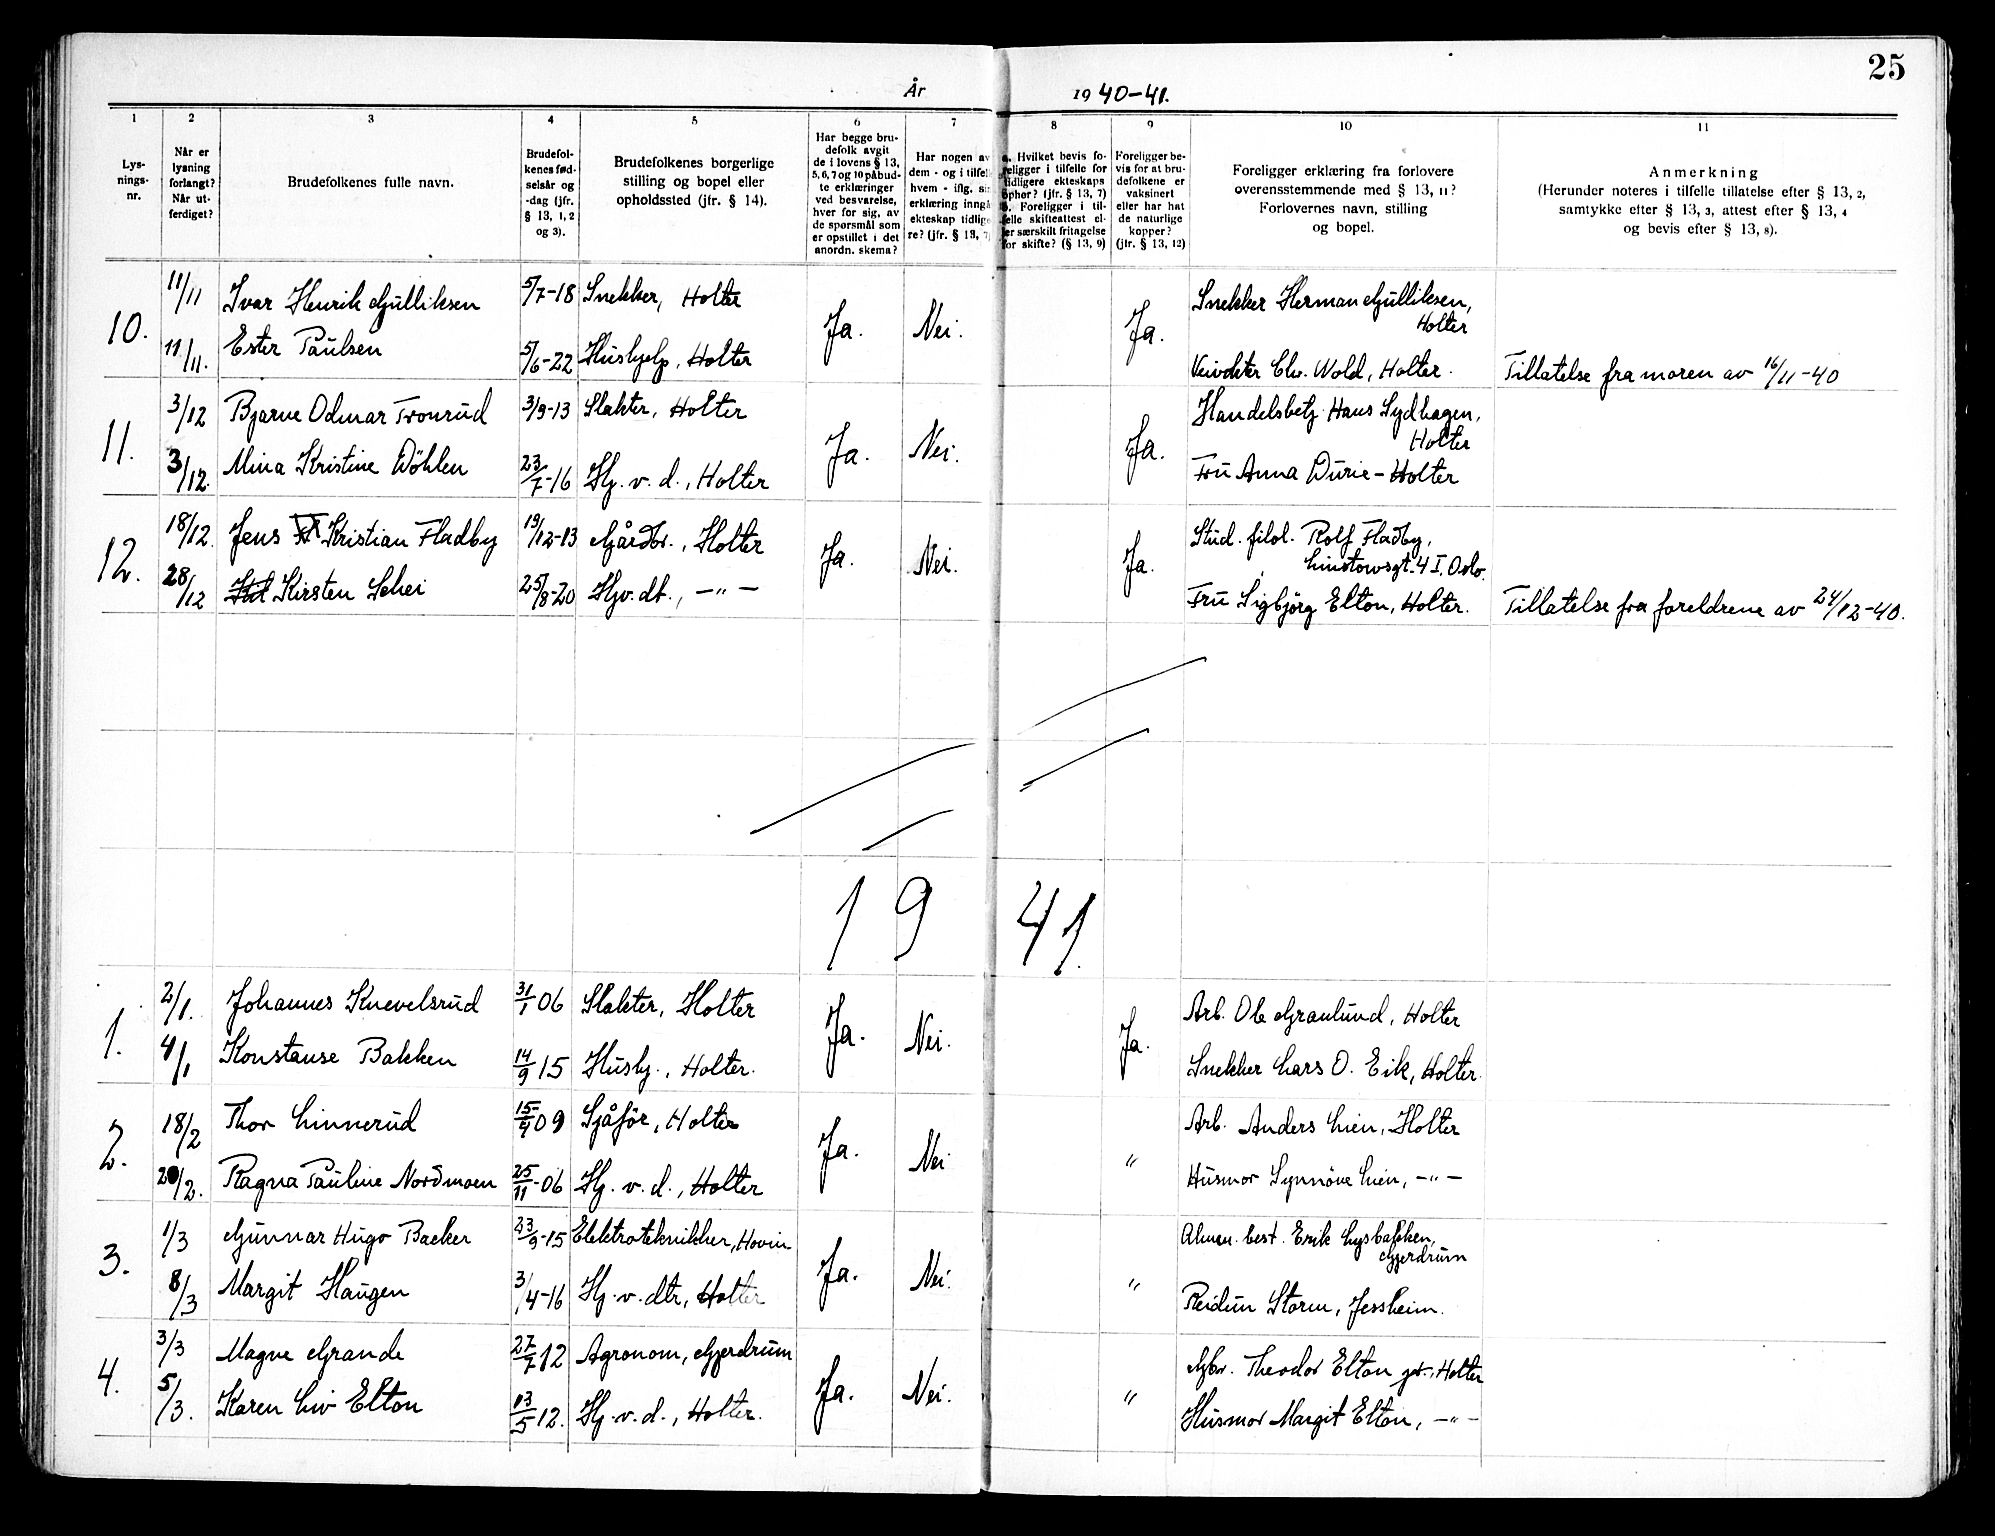 25
År 1940-41.
1 2 3 4 5 6 7 8 9 10 11
Lys-
nings-
nr.
Når er
lysning
forlangt?
Når ut-
ferdiget?
Brudefolkenes fulle navn.
Brudefol-
kenes fød-
selsår og
-dag (jfr.
§ 13, 1, 2
og 3).
Brudefolkenes borgerlige
stilling og bopel eller
opholdssted (jfr. § 14).
Har begge bru-
defolk avgit
de i lovens § 13,
5, 6, 7 og 10 påbud-
te erklæringer
ved besvarelse,
hver for sig, av
de spørsmål som
er opstillet i det
anordn. skema?
Har nogen av
dem - og i tilfelle
hvem - iflg. sin
erklæring inngå
ekteskap tidlige
re? (jfr. § 13, 7)
a. Hvilket bevis fo-
religger i tilfelle for
tidligere ekteskaps
ophør? (jfr. § 13, 7)
b. Foreligger i til-
felle skifteattest el-
ler særskilt fritagelse
for skifte? (§ 13, 9)
Foreligger be-
vis for at bru-
defolkene er
vaksinert
eller har hat
de naturlige
kopper?
(jfr. § 13, 12)
Foreligger erklæring fra forlovere
overensstemmende med § 13, 11?
Forlovernes navn, stilling
og bopel.
Anmerkning
(Herunder noteres i tilfelle tillatelse efter § 13, 2,
samtykke efter § 13, 3, attest efter § 13, 4
og bevis efter § 13, 8).
10. 11/11 Ivar Henrik Gulliksen 5/7-18 Snekker, Holter Ja. Nei. Ja. Snekker Herman Gulliksen,
Holter
11/11. Ester Paulsen 5/6-22 Hushjelp, Holter Chr. Wold, Holter. Tillatelse fra moren av 16/11-40
11. 3/12 Bjarne Odmar Tronrud 3/9-13 Slakter, Holter Ja. Nei. Ja. Handelsbetj. Hans Sydhagen,
Holter
3/12. Mina Kristine Døhlen 23/7-16 Hj. v. d., Holter Fru Anna Durie - Holter
12. 18/12. Jens Kristian Fladby 19/12-13 Gårdbr., Holter Ja. Nei. Ja. Stud. filol. Rolf Fladby,
Linstowsgt. 4 I, Oslo.
28/12 Kirsten Schei 25/8-20 Hjv. dt., -"- Fru Sigbjörg Elton, Holter. Tillatelse fra foreldrene av 24/12-40.
1941.
1. 2/1. Johannes Knevelsrud 31/1 06 Slakter, Holter Ja. Nei. Ja. Arb. Ole Granlund, Holter
4/1 Konstanse Bakken 14/9 15 Hushj., Holter. Snekker Lars O. Eik, Holter.
2. 18/2 Thor Linnerud 15/4 09 Sjåför, Holter Ja. Nei " Arb. Anders Lien, Holter
20/2. Ragna Pauline Nordmoen 25/11-06 Hj. v. d., Holter Husmor Synnöve Lien, -"-
3. 1/3 Gunnar Hugo Backer 23/9-15 Elektrotekniker, Hovin Ja. Nei. " Almen. best. Erik Lysbakken,
Gjerdrum
8/3 Margit Haugen 3/4-16 Hj. v. dtr, Holter Reidun Storm, Jessheim.
4. 3/3 Magne Grande 27/7 12 Agronom, Gjerdrum Ja. Nei. " Gbr. Theodor Elton jr., Holter
5/3. Karen Liv Elton 13/5 12. Hj. v. d., Holter. Husmor Margit Elton, -"-